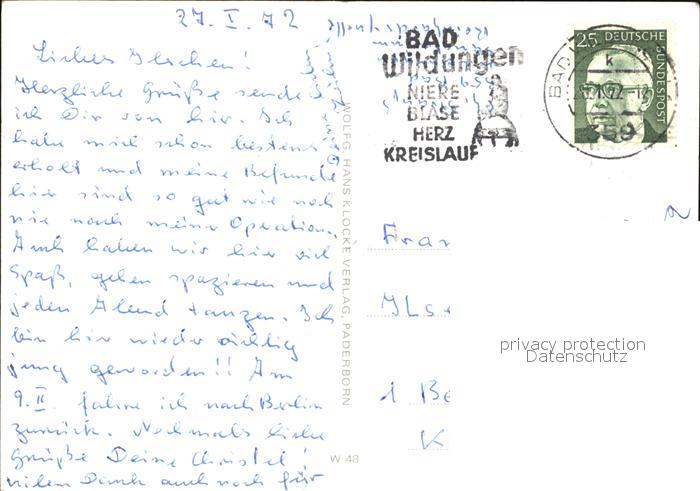 27.I.72
Liebes Ilschen!
Herzliche Grüße sende
ich Dir von hier. Ich
habe mich schon bestens
erholt und meine Befunde
hier sind so gut wie noch
nie nach meiner Operation.
Auch haben wir hier viel
Spaß, gehen spazieren und
jeden Abend tanzen. Ich
bin hier wieder richtig
jung geworden!! Am
9.II. fahre ich nach Berlin
zurück. Nochmals liebe
Grüße Deine Christel!
vielen Dank auch noch für
WOLFG. HANS KLOCKE VERLAG, PADERBORN
W 48
BAD
Wildungen
NIERE
BLASE
HERZ
KREISLAUF
BAD
k
359
25 DEUTSCHE
BUNDESPOST
Frau
Ilse
1 Be
K
privacy protection
Datenschutz